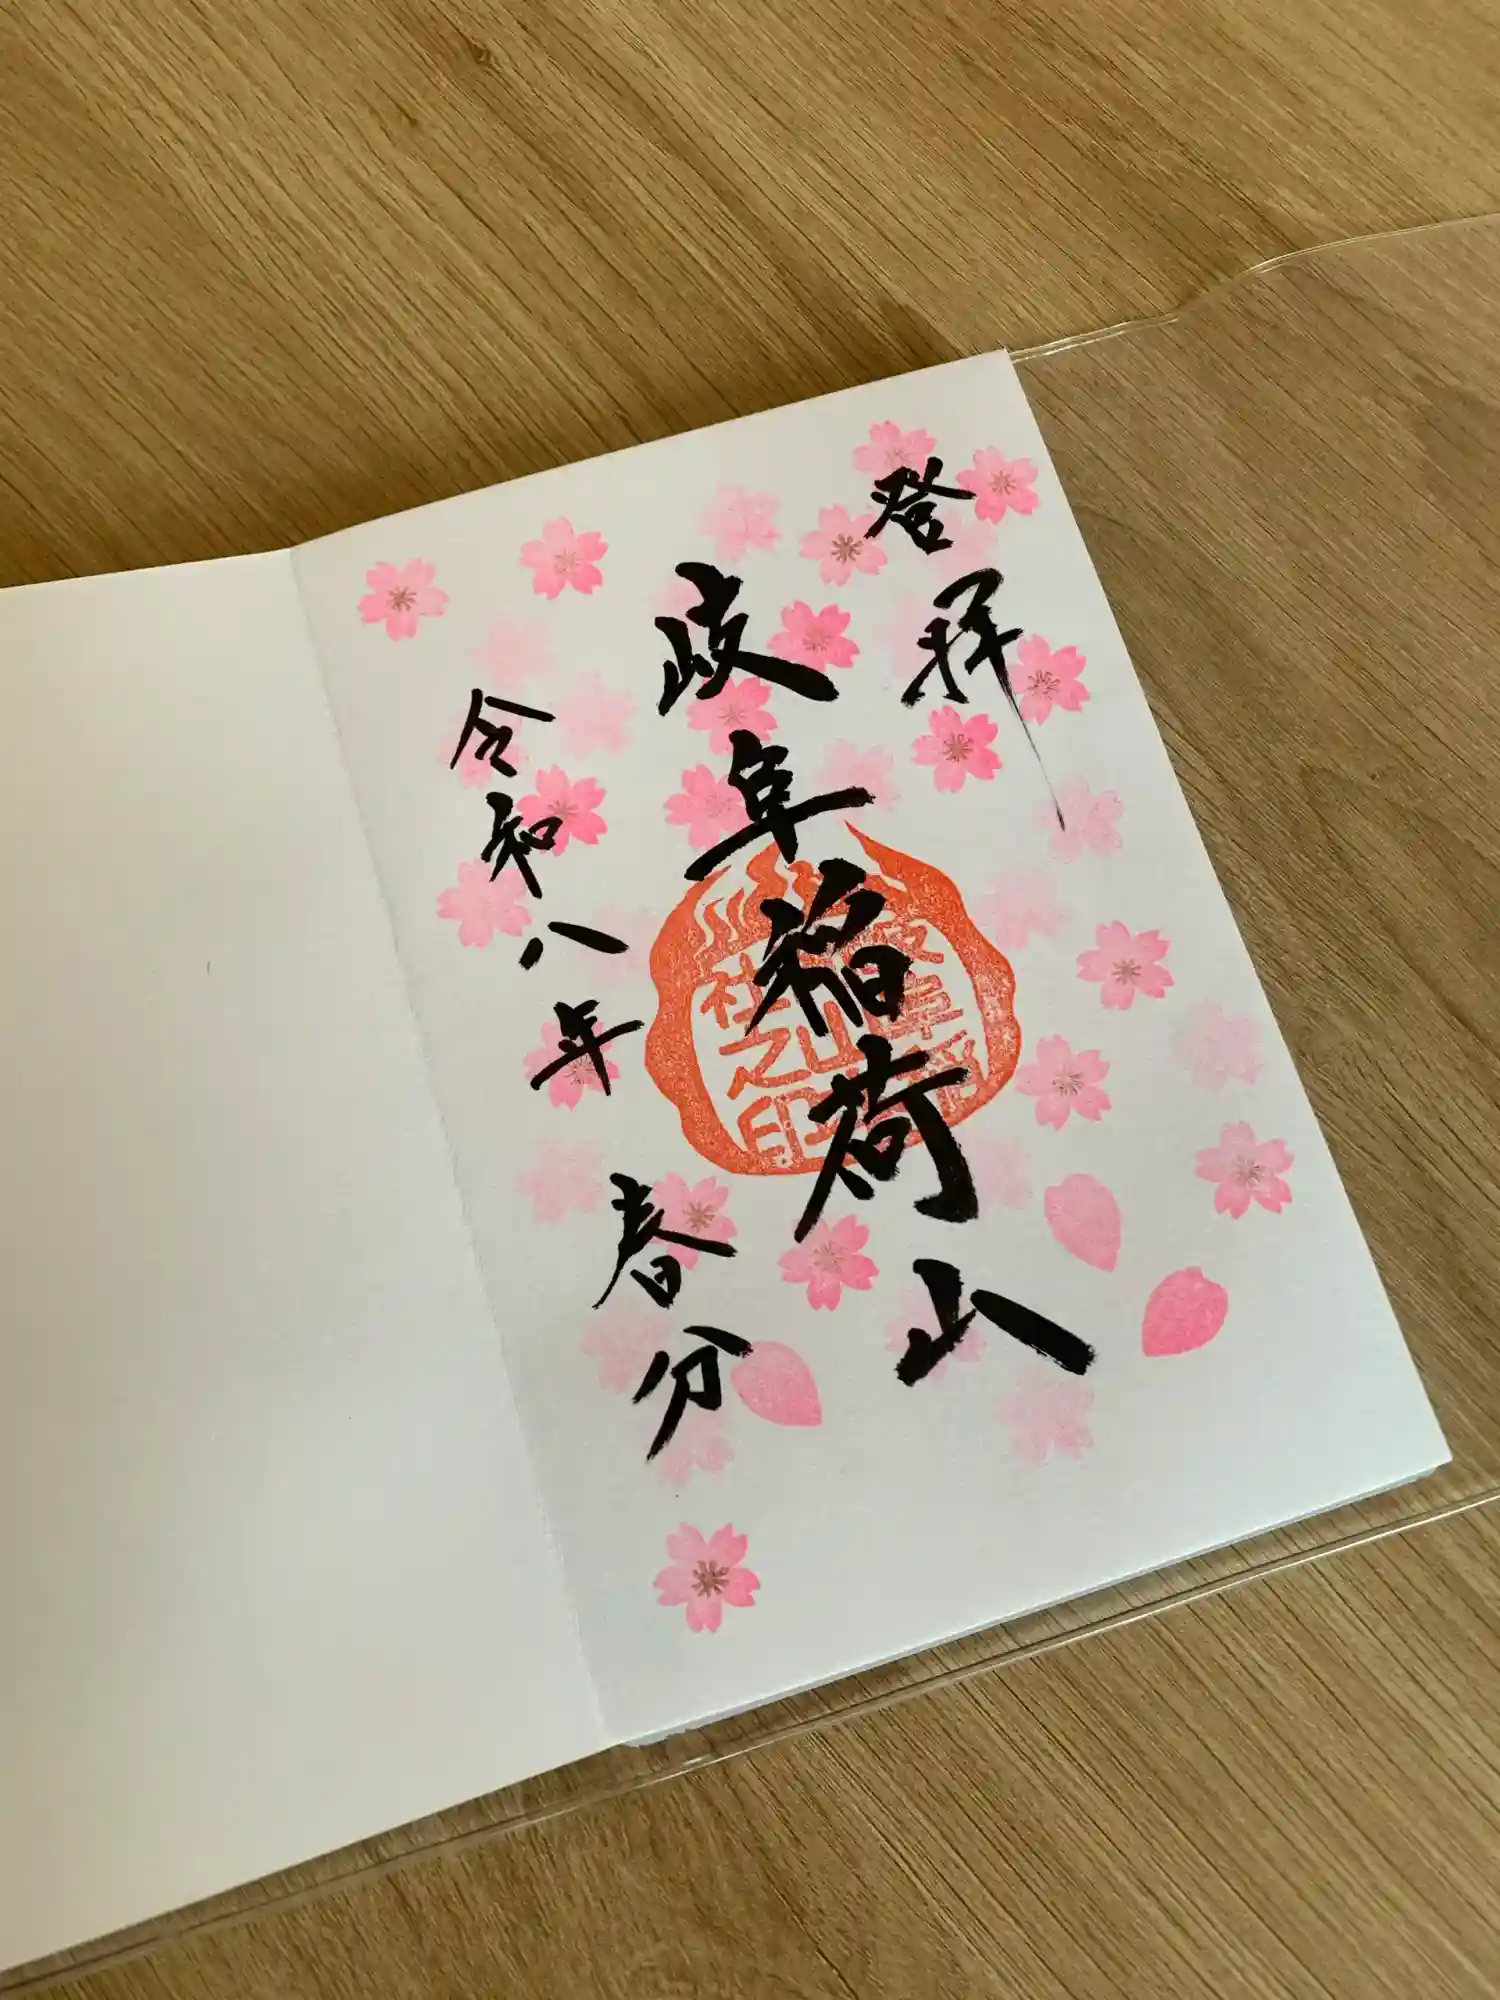 登拝
岐阜稲荷山
岐阜稲荷
山社
之印
令和八年 春分